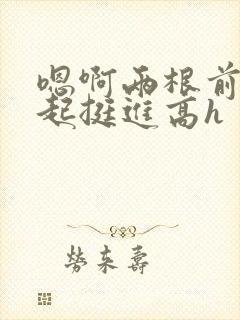 嗯啊两根前
起挺进高h
劳来寿